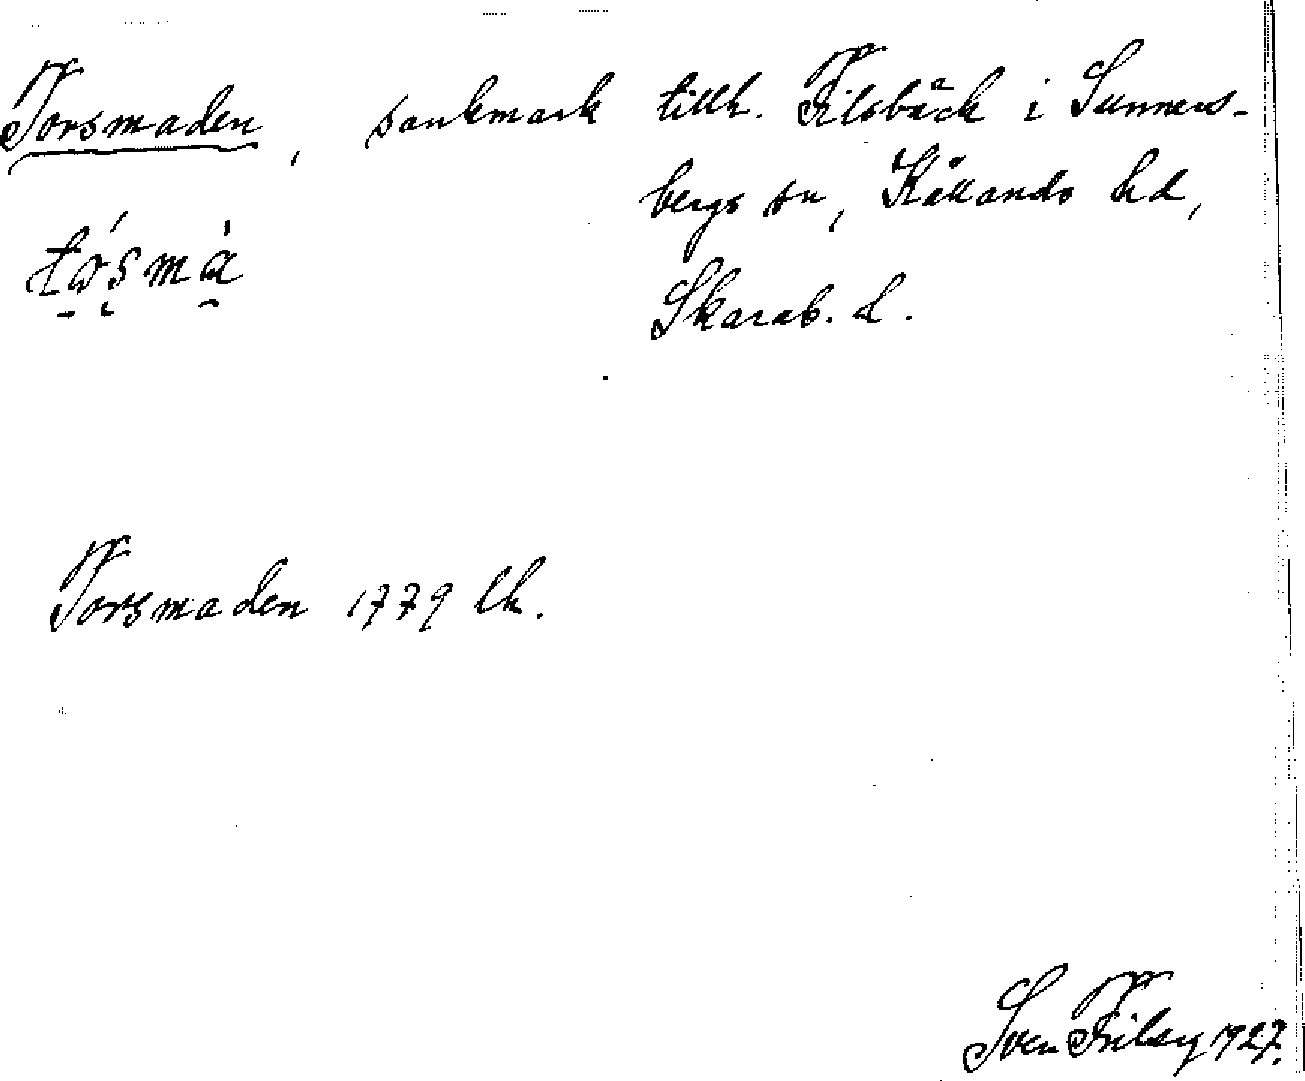 Torsmaden, sankmark tillh. Filsbäck i Sunners-
bergs sn, Kållands hd,
Skarab. l.
Torsmaden 1779 lk.
Sven Filsy 1927.